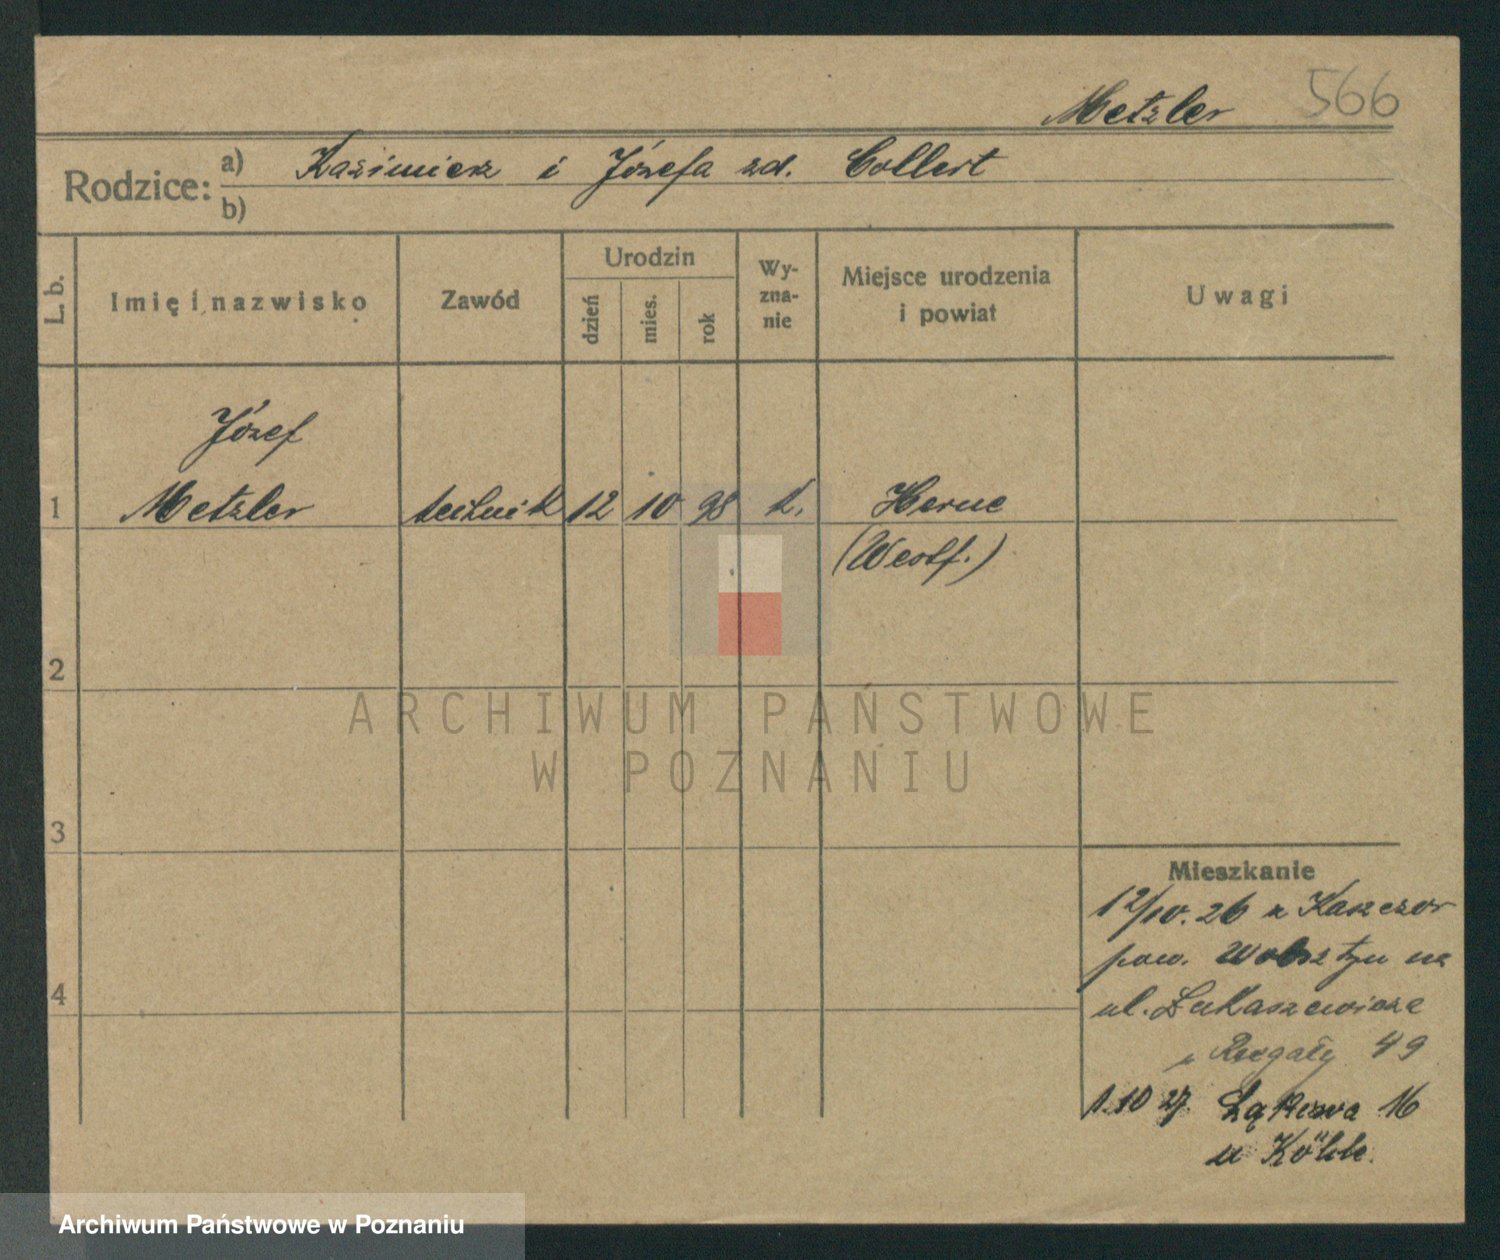 Metzler 566
Rodzice: a) Kazimierz i Józefa zd. Collert
b)
L. b. Imię i nazwisko Zawód Urodzin dzień mies. rok Wy-zna-nie Miejsce urodzenia i powiat Uwagi
Józef
1 Metzler technik 12 10 98 k. Herne
(Westf.)
2
ARCHIWUM PAŃSTWOWE
W POZNANIU
3
Mieszkanie
12/10. 26 z Kaszczor
pow. Wolsztyn na
4
ul. Łukaszewicza
49
1.10 27 Łąkowa 16
u Köhle.
Archiwum Państwowe w Poznaniu